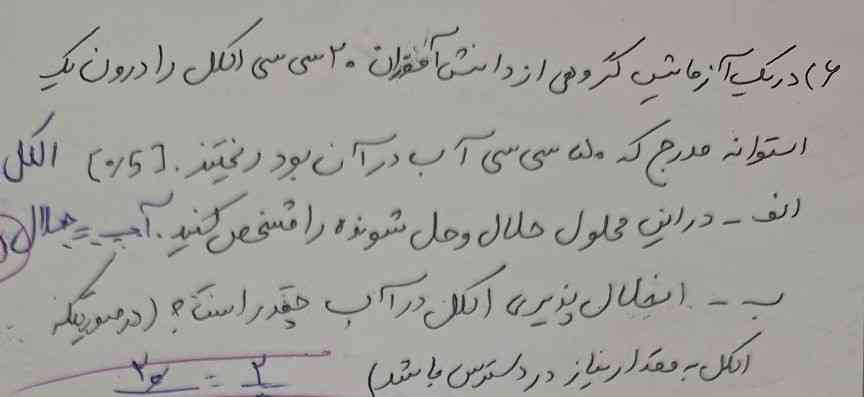 ۶) در یک آزمایش گروهی از دانش آموزان ۲۰ سی سی الکل را درون یک
استوانه مدرج که ۵۰ سی سی آب در آن بود ریختند. [۰/۵] الکل
الف - در این محلول حلال و حل شونده را مشخص کنید. آب = حلال
ب - انحلال پذیری الکل در آب چقدر است؟ (در صورتیکه
الکل به مقدار نیاز در دسترس باشد) ۲ = ۲۰